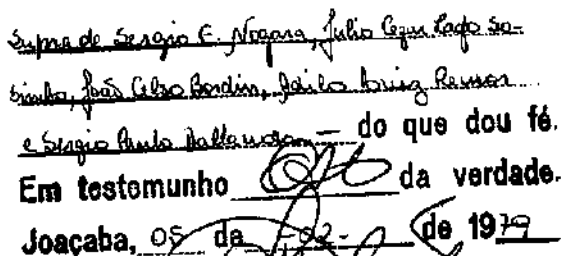 supra de Sergio E. Nogara, Julio Cezar Lago So-
brinho, João Celso Bordin, Luiz Remor
e Sergio Paulo — do que dou fé.
Em testemunho da verdade.
Joaçaba, 05 de -02- de 1979